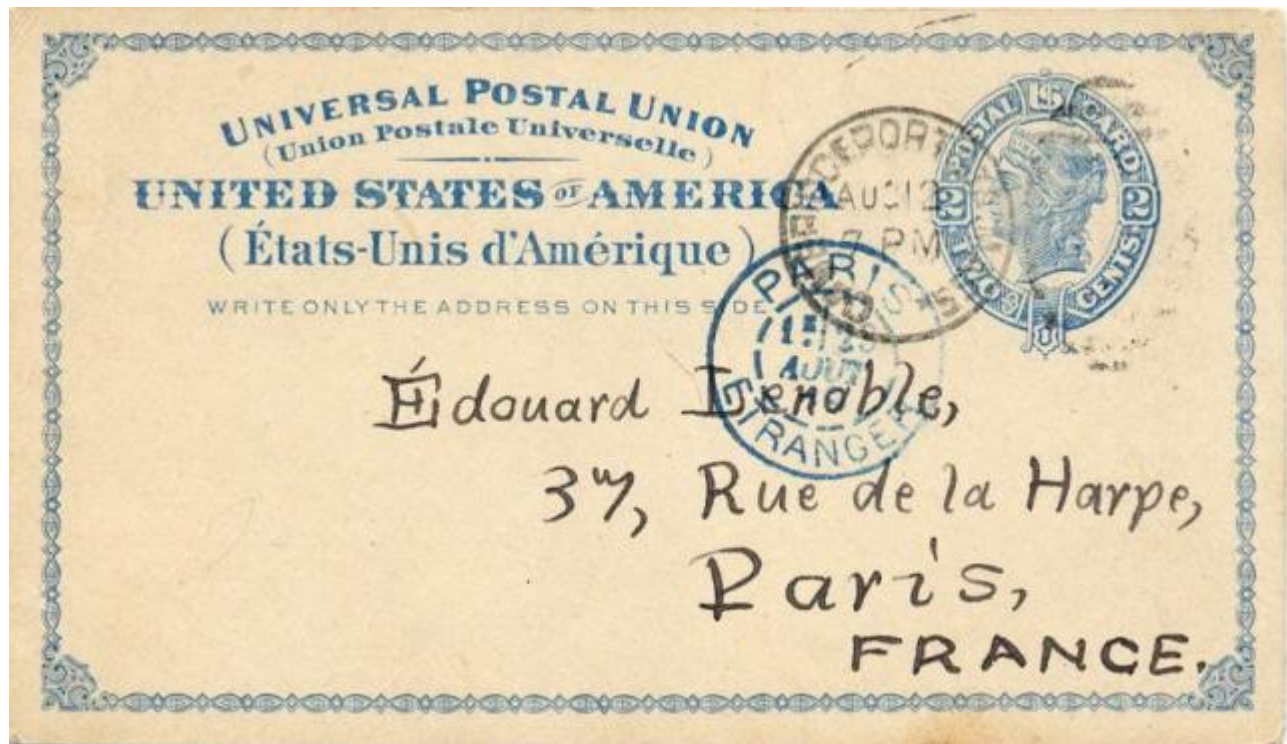 UNIVERSAL POSTAL UNION
(Union Postale Universelle)
UNITED STATES OF AMERICA
(États-Unis d'Amérique)
WRITE ONLY THE ADDRESS ON THIS SIDE
POSTAL US CARD
2 TWO CENTS 2
BRIDGEPORT
AUG 12
7 PM
CONN.
PARIS
AOUT
ETRANGER
Édouard Lenoble,
37, Rue de la Harpe,
Paris,
FRANCE.